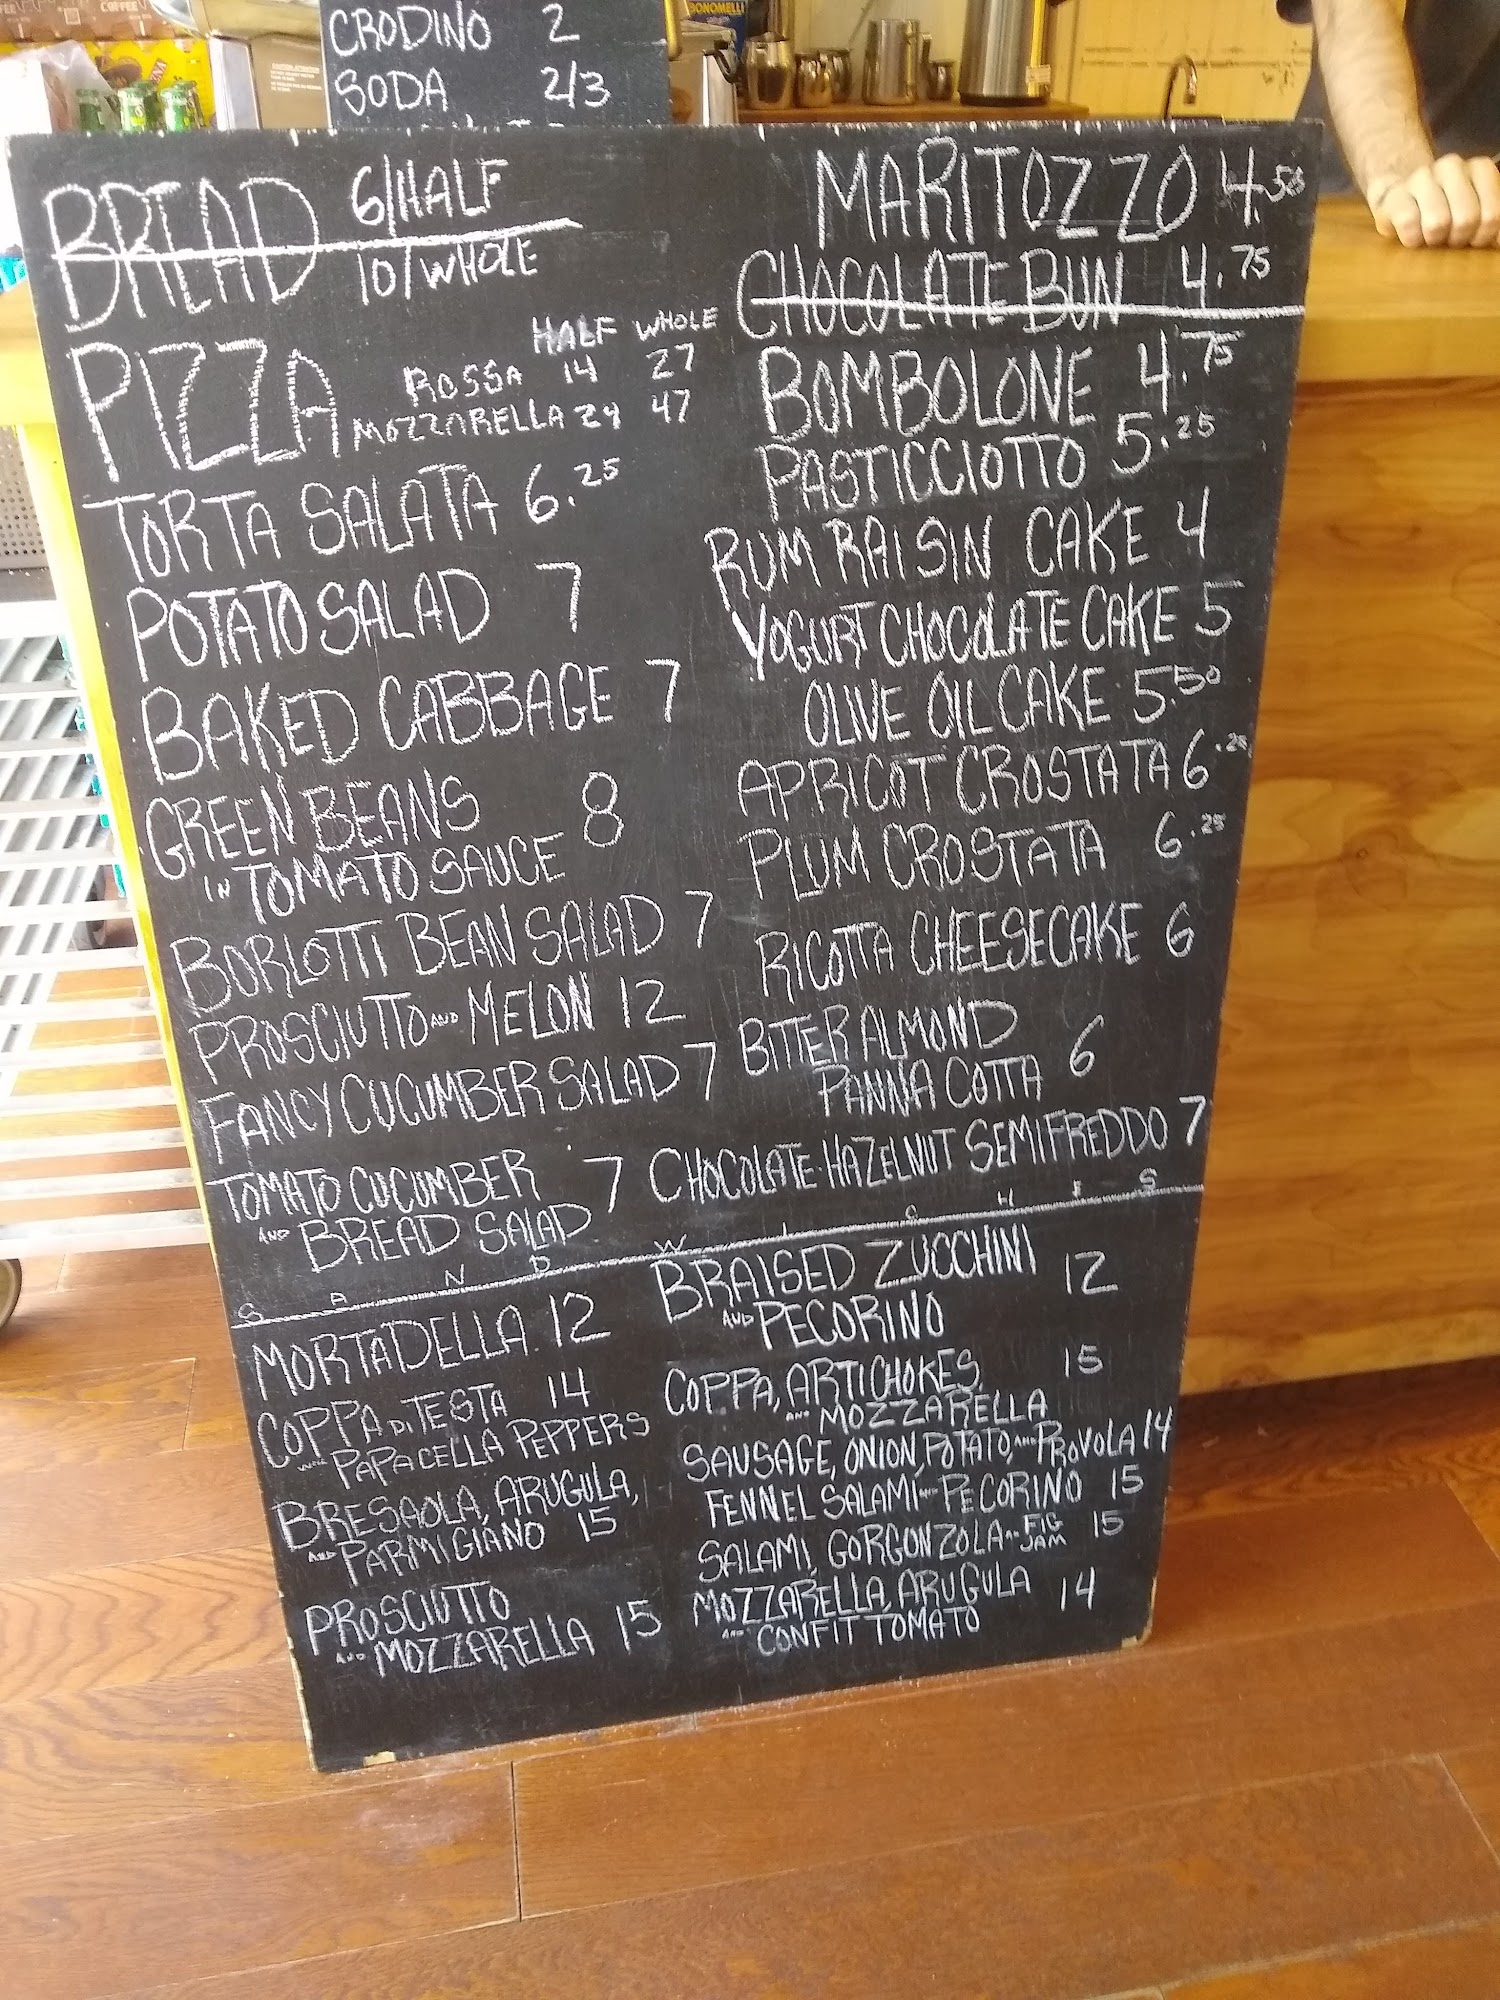 CRODINO 2
SODA 2/3
BREAD 6/HALF
10/WHOLE
HALF WHOLE
PIZZA ROSSA 14 27
MOZZARELLA 24 47
TORTA SALATA 6.25
POTATO SALAD 7
BAKED CABBAGE 7
GREEN BEANS 8
IN TOMATO SAUCE
BORLOTTI BEAN SALAD 7
PROSCIUTTO AND MELON 12
FANCY CUCUMBER SALAD 7
TOMATO CUCUMBER 7
AND BREAD SALAD
MARITOZZO 4.50
CHOCOLATE BUN 4.75
BOMBOLONE 4.75
PASTICCIOTTO 5.25
RUM RAISIN CAKE 4
YOGURT CHOCOLATE CAKE 5
OLIVE OIL CAKE 5.50
APRICOT CROSTATA 6.25
PLUM CROSTATA 6.25
RICOTTA CHEESECAKE 6
BITTER ALMOND 6
PANNA COTTA
CHOCOLATE-HAZELNUT SEMIFREDDO 7
SANDWICHES
MORTADELLA 12
COPPA DI TESTA 14
WITH PAPACELLA PEPPERS
BRESAOLA, ARUGULA,
AND PARMIGIANO 15
PROSCIUTTO
AND MOZZARELLA 15
BRAISED ZUCCHINI 12
AND PECORINO
COPPA, ARTICHOKES, 15
AND MOZZARELLA
SAUSAGE, ONION, POTATO, AND PROVOLA 14
FENNEL SALAMI AND PECORINO 15
SALAMI, GORGONZOLA AND FIG JAM 15
MOZZARELLA, ARUGULA 14
AND CONFIT TOMATO
BONOMELLI
COFFEE